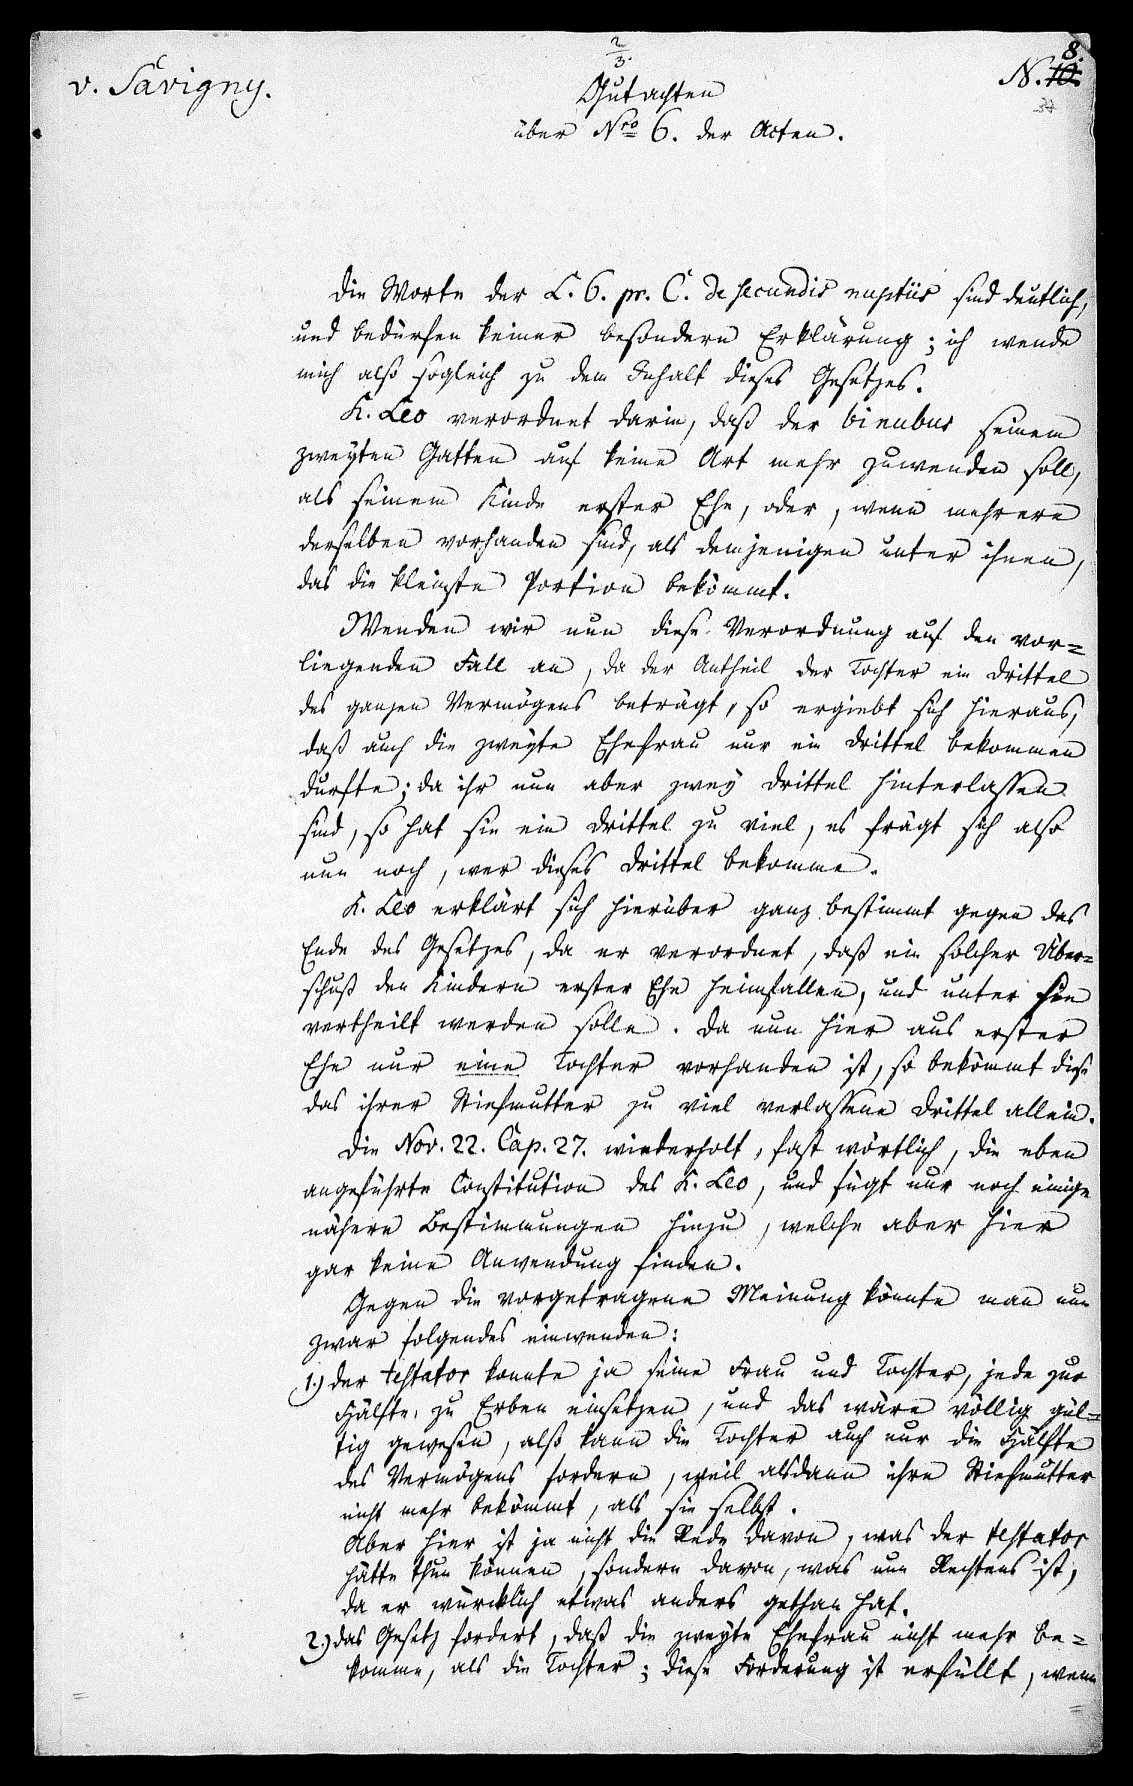 v. Savigny.
2/3.
8.
N. 10.
Gutachten
über Nro 6. der Acten.
Die Worte der L. 6. pr. C. de secundis nuptiis sind deutlich,
und bedürfen keiner besondern Erklärung; ich wende
mich also sogleich zu dem Inhalt dieses Gesetzes.
K. Leo verordnet darin, daß der binubus seinem
zweyten Gatten auf keine Art mehr zuwenden soll,
als seinem Kinde erster Ehe, oder, wenn mehrere
derselben vorhanden sind, als demjenigen unter ihnen,
das die kleinste Portion bekömmt.
Wenden wir nun diese Verordnung auf den vor=
liegenden Fall an, da der Antheil der Tochter ein Drittel
des ganzen Vermögens beträgt, so ergiebt sich hieraus,
daß auch die zweyte Ehefrau nur ein Drittel bekommen
durfte; da ihr nun aber zwey Drittel hinterlassen
sind, so hat sie ein Drittel zu viel, es frägt sich also
nun noch, wer dieses Drittel bekomme.
K. Leo erklärt sich hierüber ganz bestimmt gegen das
Ende des Gesetzes, da er verordnet, daß ein solcher Über=
schuß den Kindern erster Ehe heimfallen, und unter sie
vertheilt werden solle. Da nun hier aus erster
Ehe nur eine Tochter vorhanden ist, so bekömmt diese
das ihrer Stiefmutter zu viel verlassene Drittel allein.
Die Nov. 22. Cap. 27. wiederholt, fast wörtlich, die eben
angeführte Constitution des K. Leo, und fügt nur noch einige
nähere Bestimmungen hinzu, welche aber hier
gar keine Anwendung finden.
Gegen die vorgetragene Meinung könnte man nun
zwar folgendes einwenden:
1.) Der testator konnte ja seine Frau und Tochter, jede zur
Hälfte, zu Erben einsetzen, und das wäre völlig gül=
tig gewesen, also kann die Tochter auch nur die Hälfte
des Vermögens fordern, weil alsdann ihre Stiefmutter
nicht mehr bekömmt, als sie selbst.
Aber hier ist ja nicht die Rede davon, was der testator
hätte thun können, sondern davon, was nun Rechtens ist,
da er würcklich etwas anders gethan hat.
2.) Das Gesetz fordert, daß die zweyte Ehefrau nicht mehr be=
komme, als die Tochter; diese Forderung ist erfüllt, wenn